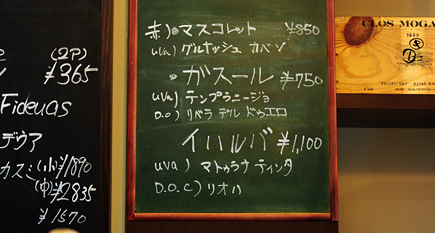 (2P)
¥365
Fideuas
デウア
カス:(小)¥1890
(中)¥2835
¥1570
赤) マスコレット ¥850
uva) グルナッシュ カベソ
・ガスール ¥750
uva) テンプラニージョ
D.O) リベラ デル ドゥエロ
イハルバ ¥1,100
uva) マトゥラナ ティンタ
D.O.C) リオハ
CLOS MOGA